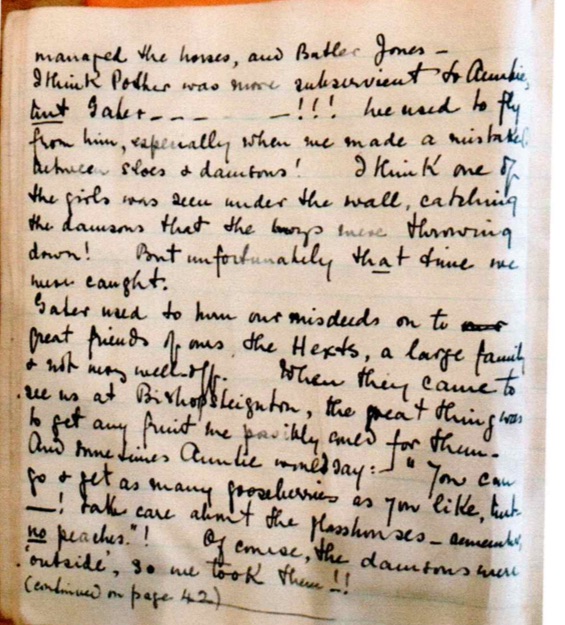 managed the horses, and Butler Jones –
I think Pother was more subservient to Auntie,
but Gater – – – – – – !!! We used to fly
from him, especially when we made a mistake
between sloes & damsons! I think one of
the girls was seen under the wall, catching
the damsons that the boys were throwing
down! But unfortunately that time we
were caught.
Gater used to turn our misdeeds on to
great friends of ours, the Hexts, a large family
& not very well-off. When they came to
see us at Bishopsteignton, the great thing was
to get any fruit we possibly could for them.
And sometimes Auntie would say:– "You can
go & get as many gooseberries as you like, but
—! take care about the glasshouses – remember,
no peaches."! Of course, the damsons were
'outside', so we took them!!
(continued on page 42)